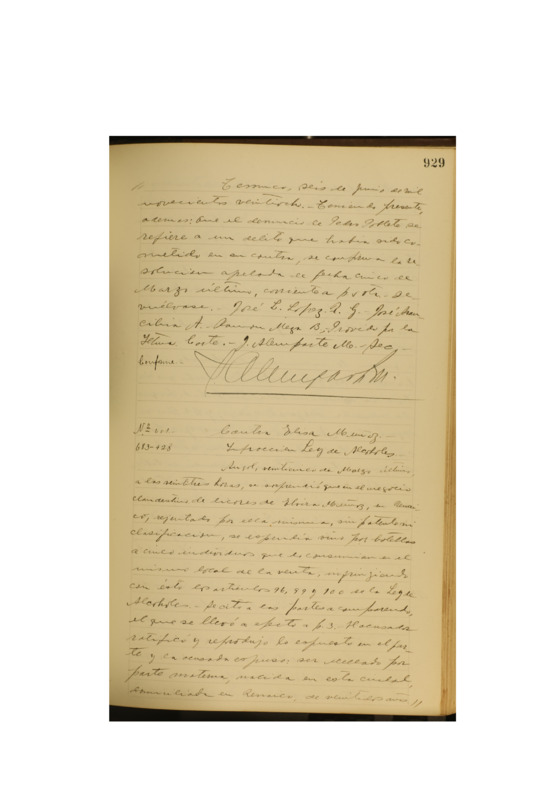 929
Temuco, seis de Junio de mil
novecientos veintiocho.- Teniendo presente,
ademas: que el denuncio de Pedro Poblete se
refiere a un delito que habia sido co-
metido en su contra, se confirma la re
solucion apelada de fecha cinco de
Marzo último, corriente a fs. De-
vuélvase.- José L. Lopez A. G. José
A.- Ramon Meza B. Proveido por la
Iltma Corte.- J. Alemparte M.- Sec
Conforme.-
Nº
683-428
Contra Elisa Muñoz
Infraccion Ley de Alcoholes.-
Angol, veintiuno de Marzo último
a las veintitres horas, se sorprendió que en el negocio
clandestino de licores de Muñoz, en
rejentado por ella misma, sin patente ni
clasificacion, se expendia vino por botellas
a cinco individuos que lo consumian en el
mismo local de la venta, infrinjiendo
con esto los articulos 96, 99 y 100 de la Ley de
Alcoholes.- Se citó a las partes a comparendo,
el que se llevó a efecto a fs 3. El acusador
ratificó y reprodujo lo espuesto en el par-
te y la acusada espuso: ser
parte materna, nacida en esta ciudad,
en de veintidos años